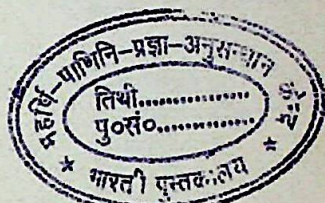 महर्षि-पाणिनि-प्रज्ञा-अनुसन्धान
तिथी................
पु०सं०...............
* भारती पुस्तकालय *